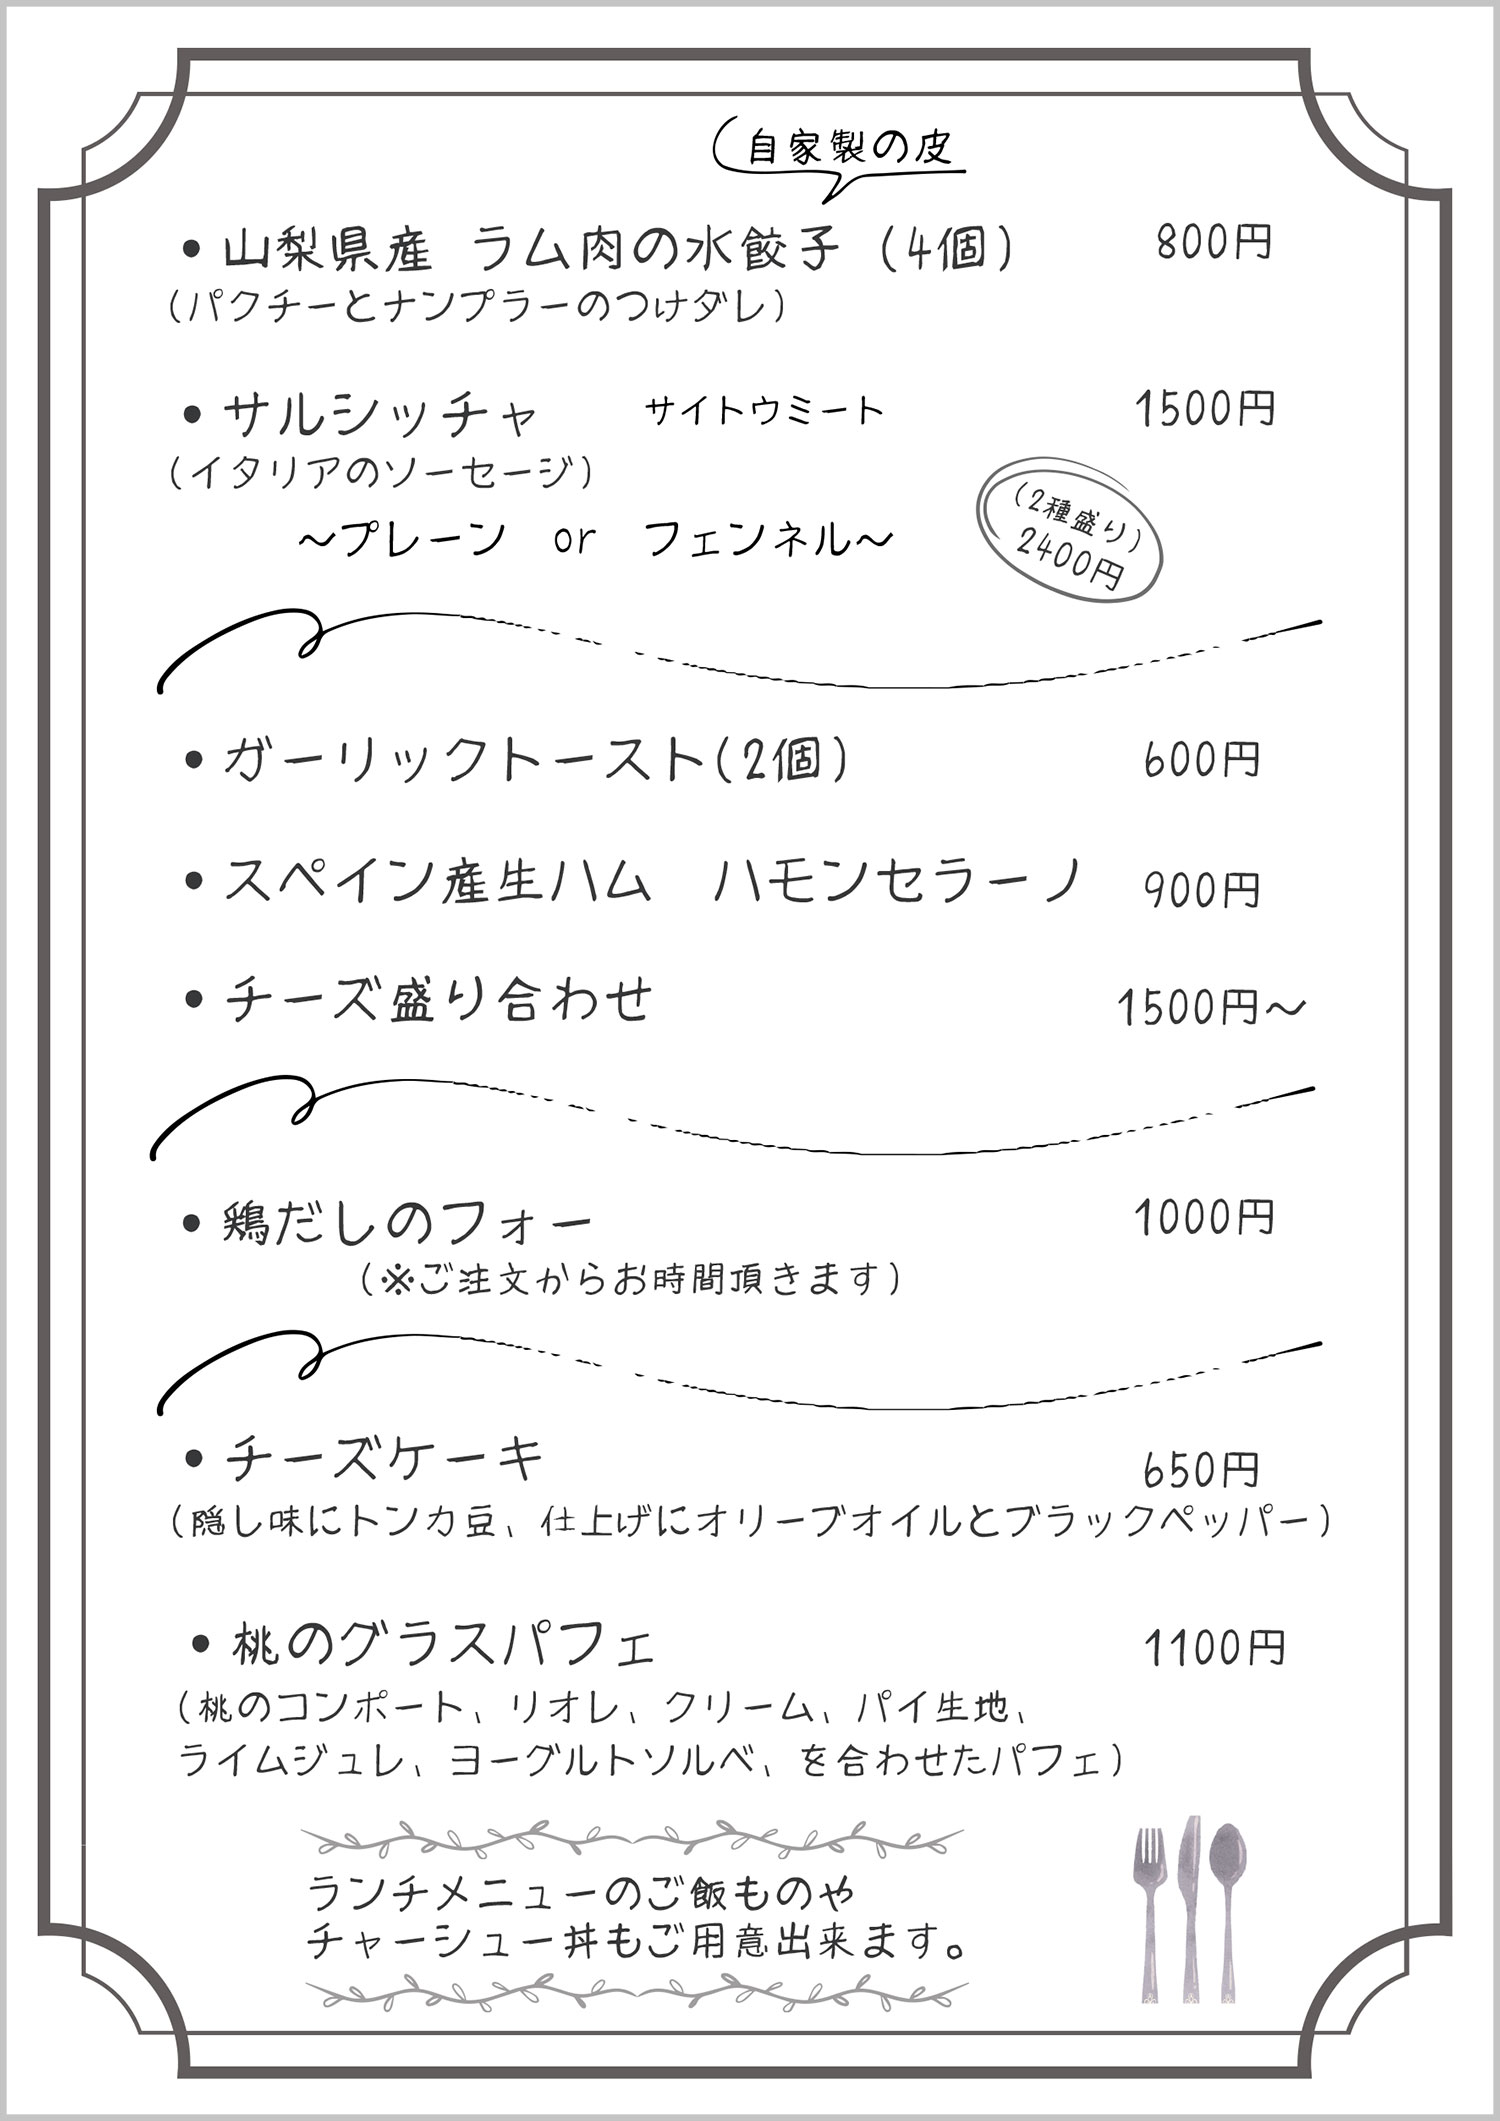 自家製の皮
•山梨県産 ラム肉の水餃子(4個) 800円
(パクチーとナンプラーのつけダレ)
•サルシッチャ サイトウミート 1500円
(イタリアのソーセージ)
〜プレーン or フェンネル〜
(2種盛り)
2400円
•ガーリックトースト(2個) 600円
•スペイン産生ハム ハモンセラーノ 900円
•チーズ盛り合わせ 1500円〜
•鶏だしのフォー 1000円
(※ご注文からお時間頂きます)
•チーズケーキ 650円
(隠し味にトンカ豆、仕上げにオリーブオイルとブラックペッパー)
•桃のグラスパフェ 1100円
(桃のコンポート、リオレ、クリーム、パイ生地、
ライムジュレ、ヨーグルトソルベ、を合わせたパフェ)
ランチメニューのご飯ものや
チャーシュー丼もご用意出来ます。